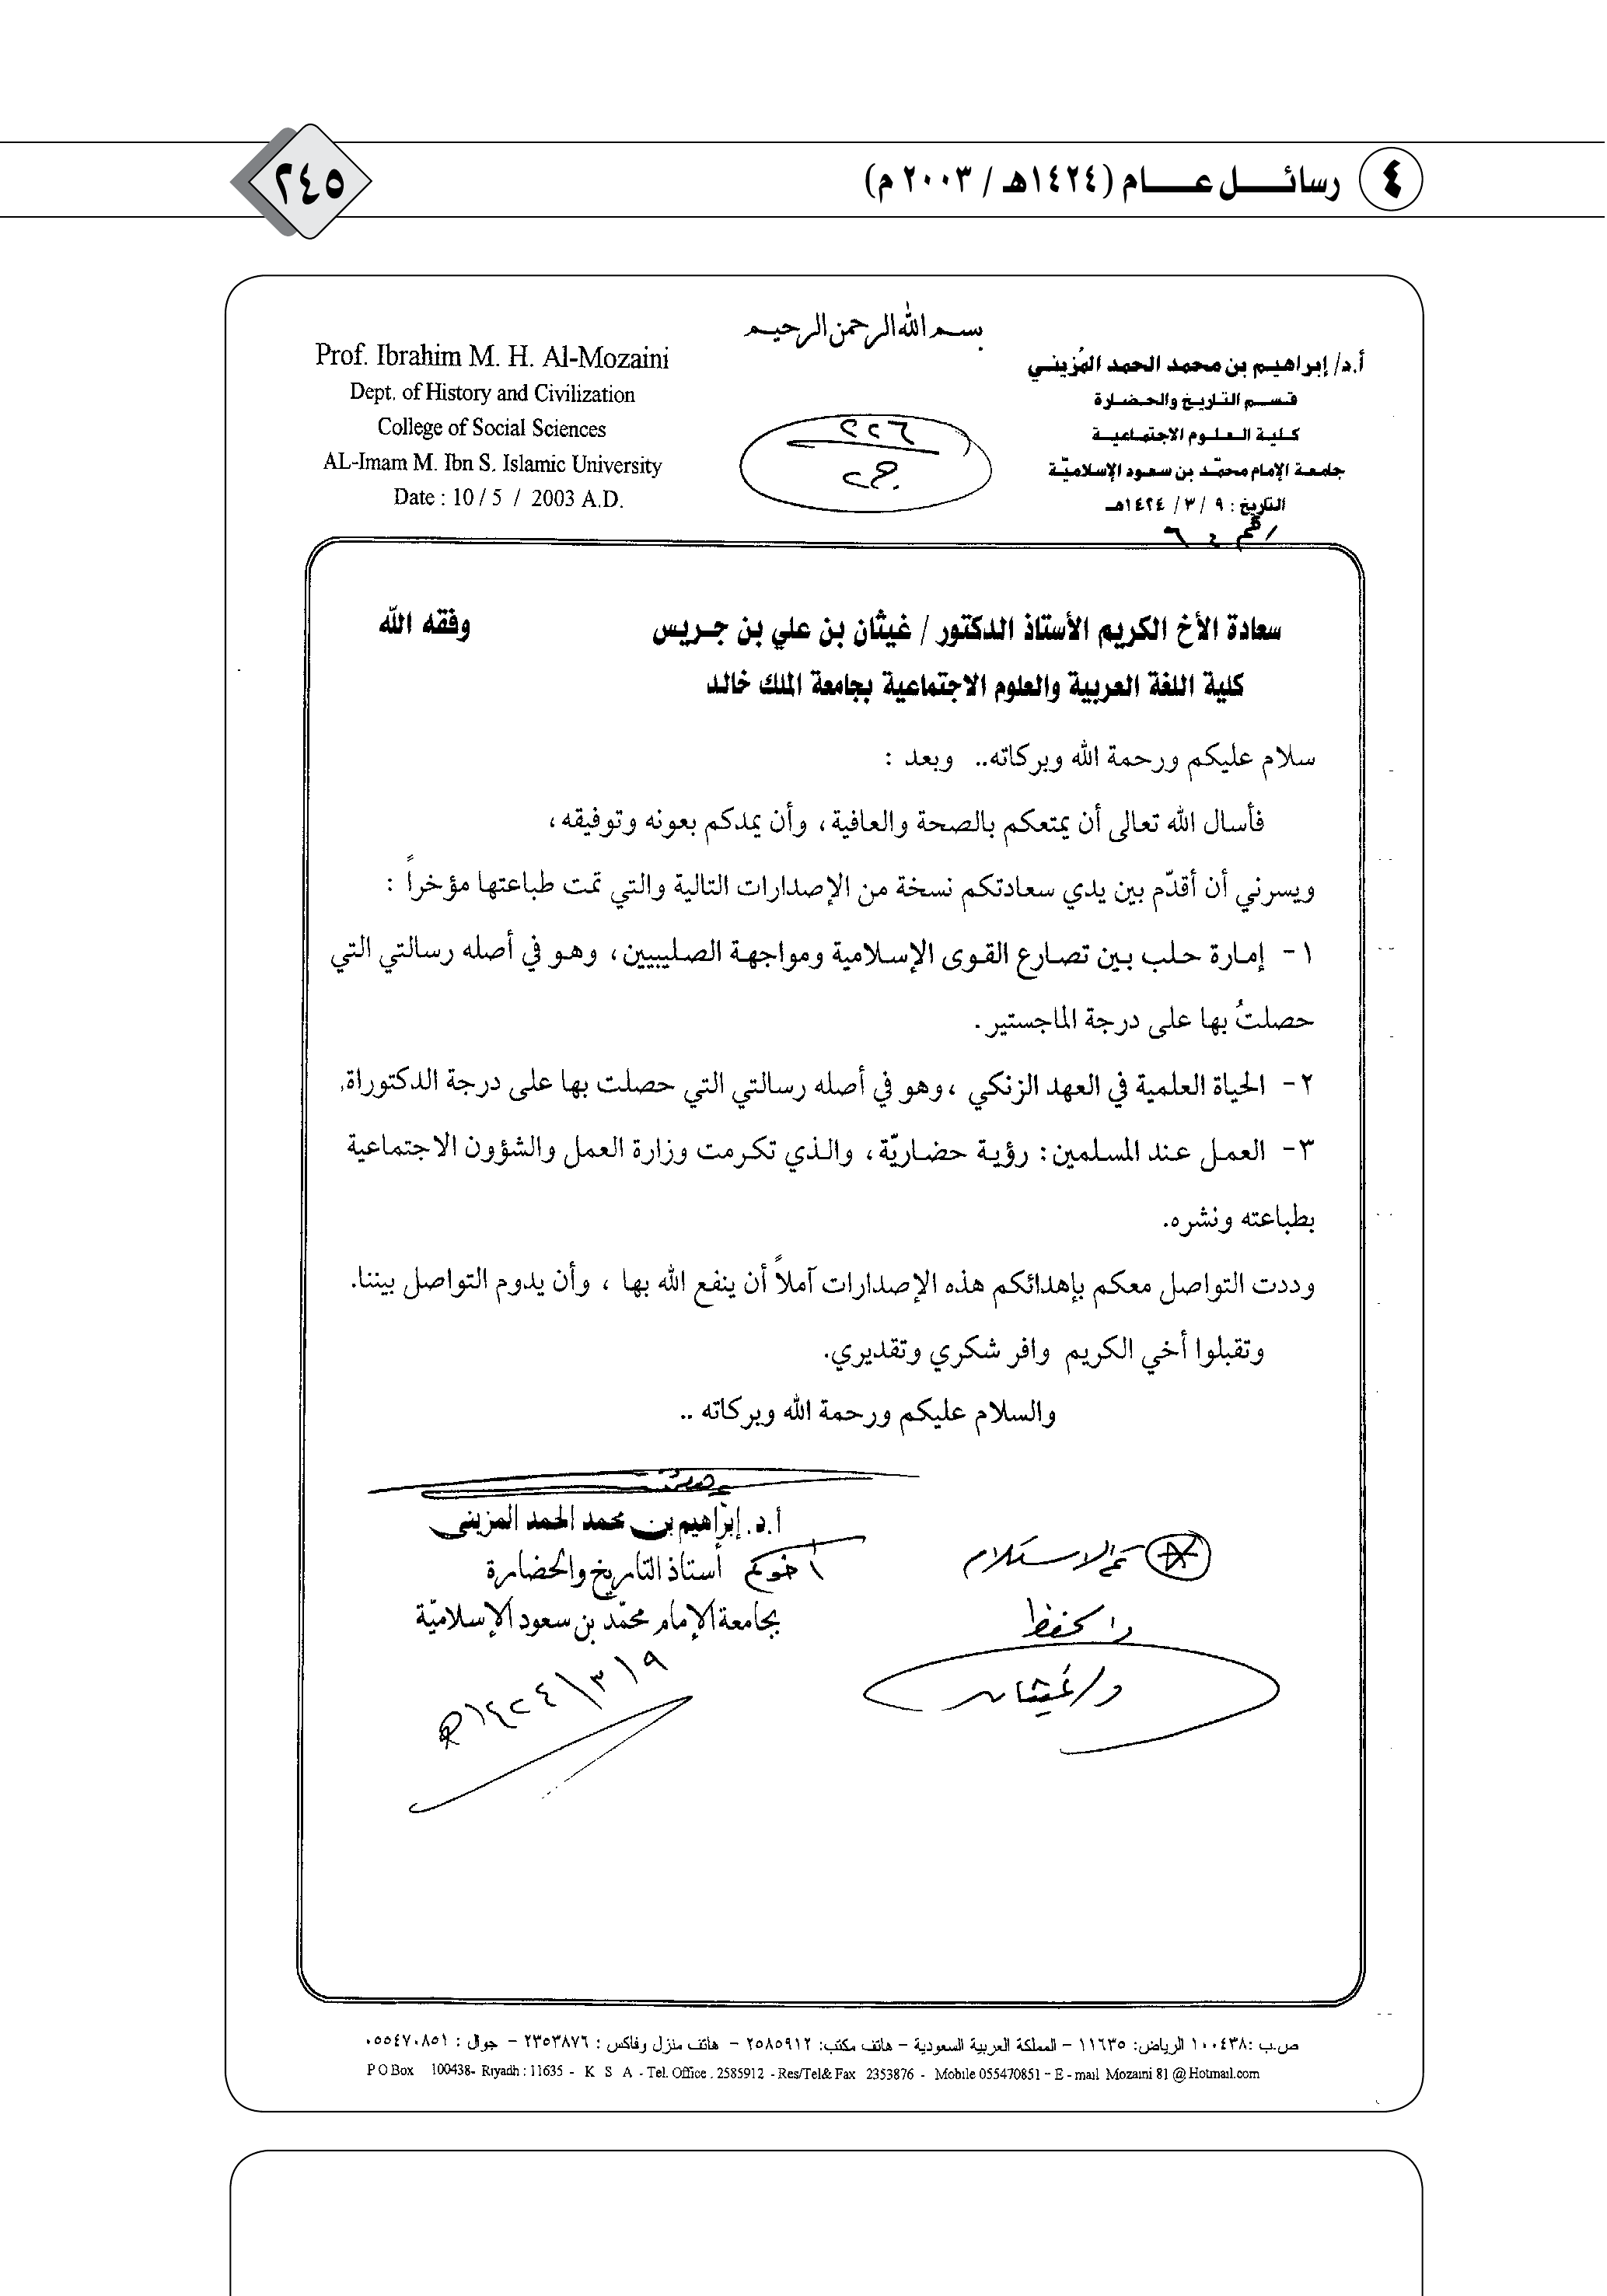 ٤ رسائل عام (١٤٢٤هـ / ٢٠٠٣ م)
٢٤٥
بسم الله الرحمن الرحيم
أ.د/ إبراهيم بن محمد الحمد المُزيني
قسم التاريخ والحضارة
كلية العلوم الاجتماعية
جامعة الإمام محمّد بن سعود الإسلاميّة
التاريخ : ٩ / ٣ / ١٤٢٤هـ
Prof. Ibrahim M. H. Al-Mozaini
Dept. of History and Civilization
College of Social Sciences
AL-Imam M. Ibn S. Islamic University
Date : 10 / 5 / 2003 A.D.
٢٢٦
سعادة الأخ الكريم الأستاذ الدكتور / غيثان بن علي بن جريس وفقه الله
كلية اللغة العربية والعلوم الاجتماعية بجامعة الملك خالد
سلام عليكم ورحمة الله وبركاته.. وبعد :
فأسال الله تعالى أن يمتعكم بالصحة والعافية، وأن يمدكم بعونه وتوفيقه،
ويسرني أن أقدّم بين يدي سعادتكم نسخة من الإصدارات التالية والتي تمت طباعتها مؤخراً :
١- إمارة حلب بين تصارع القوى الإسلامية ومواجهة الصليبيين، وهو في أصله رسالتي التي
حصلتُ بها على درجة الماجستير.
٢- الحياة العلمية في العهد الزنكي ، وهو في أصله رسالتي التي حصلت بها على درجة الدكتوراة.
٣- العمل عند المسلمين: رؤية حضاريّة، والذي تكرمت وزارة العمل والشؤون الاجتماعية
بطباعته ونشره.
وددت التواصل معكم بإهدائكم هذه الإصدارات آملاً أن ينفع الله بها ، وأن يدوم التواصل بيننا.
وتقبلوا أخي الكريم وافر شكري وتقديري.
والسلام عليكم ورحمة الله وبركاته ..
أ.د. إبراهيم بن محمد الحمد المزيني
أخوكم أستاذ التاريخ والحضارة
بجامعة الإمام محمّد بن سعود الإسلاميّة
٩/٣/١٤٢٤هـ
تم الاستلام
والحفظ
د/ غيثان
ص.ب :١٠٠٤٣٨ الرياض: ١١٦٣٥ – المملكة العربية السعودية – هاتف مكتب: ٢٥٨٥٩١٢ – هاتف منزل وفاكس : ٢٣٥٣٨٧٦ – جوال : ٠٥٥٤٧٠٨٥١
P O Box 100438- Riyadh : 11635 - K S A - Tel. Office . 2585912 - Res/Tel& Fax 2353876 - Mobile 055470851 – E - mail Mozaini 81 @ Hotmail.com